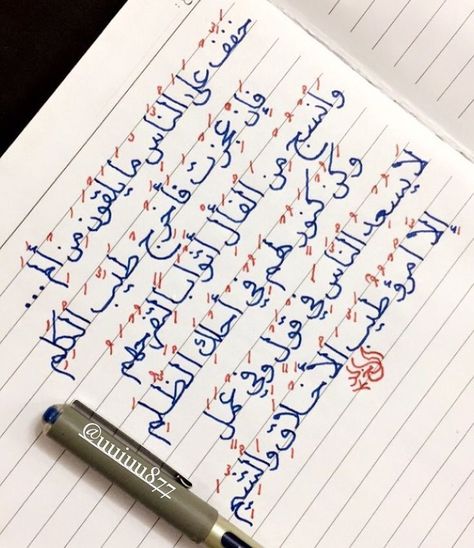 خفف على الناس ما يلقون من ألم ...
فإن عجزت فأخرج طيب الكلم
وانسج من الفأل أثوابا لتفرحهم
وكن كنور لهم في أحلك الظلم
لا يسعد الناس في قول وفي عمل
إلا امرؤ طيب الأخلاق والشيم
@uuiuu877